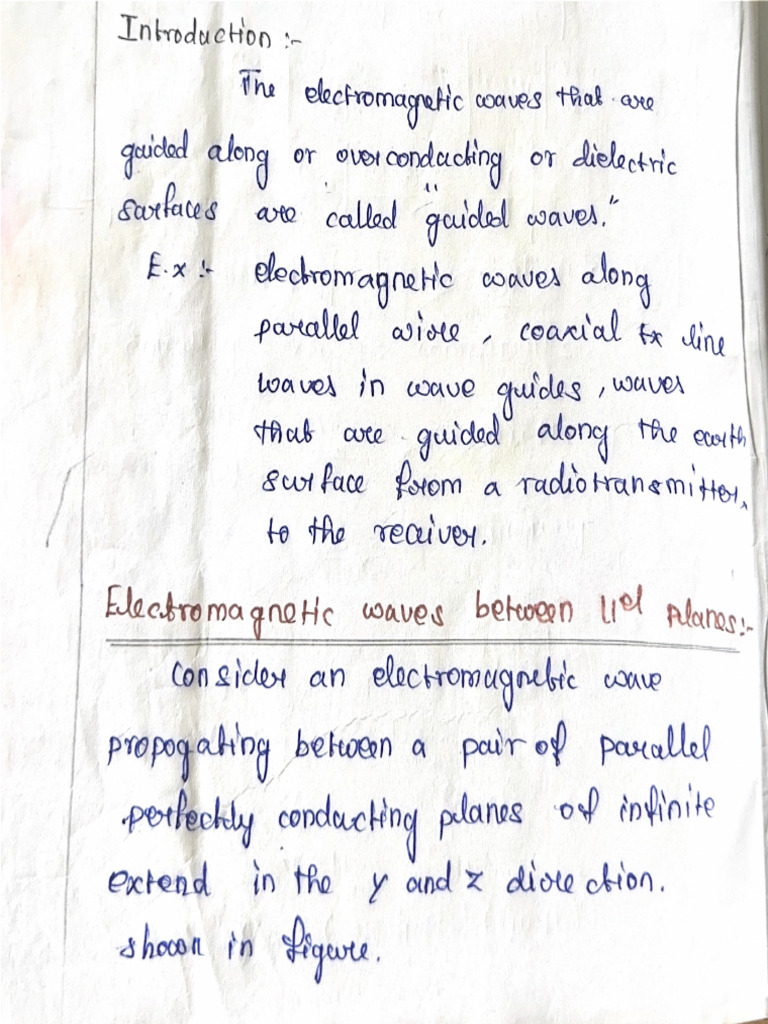 Introduction :-
The electromagnetic waves that are
guided along or over conducting or dielectric
surfaces are called "guided waves."
E.x :- electromagnetic waves along
parallel wire, coaxial tx line
waves in wave guides, waves
that are guided along the earth
surface from a radio transmitter,
to the receiver.
Electromagnetic waves between 11el planes:-
Consider an electromagnetic wave
propogating between a pair of parallel
perfectly conducting planes of infinite
extend in the y and z direction.
shown in figure.